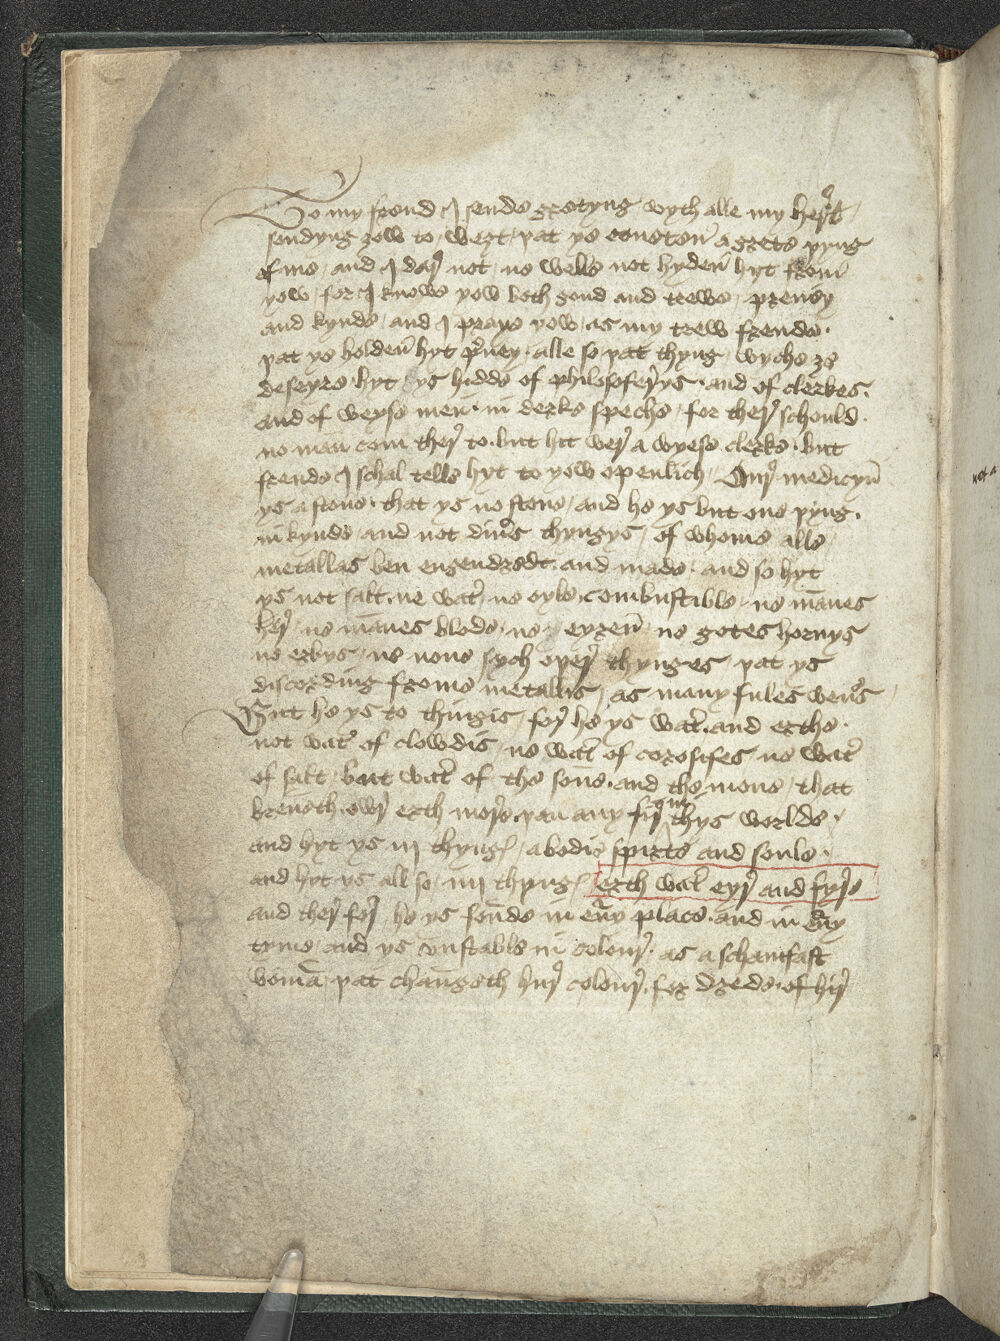 To my frend I sende gretyng wyth alle my hert
sendyng ȝow to wezt þat ys conston̄ a grete þyng
of me and I dar not ne welle not hyden̄ hyt from̄
yow for I knowe yow both good and trewe prevey
and kynde and I praye yow as my trew frende
þat ye holden̄ hyt prvey alle so þat thyng wyche ȝe
deseyre hyt ys hidde of philosoferys and of clerkes
and of weyse men in derke speche for ther schould
no man com ther to but hit wer a wyese clerke but
frende I schal telle hyt to yow openlich Our medicyn̄
ys a stone that ys no stone and he ys but one þyng
in kynde and not divers thyngys of whome alle
metallas ben engendredt and made and so hyt
ys not salt ne wat̄ ne oyle combustible ne mānes
her ne mānes blode ne eyren̄ ne gotes hornys
ne erbys ne none sych oper thynges þat ys
discording frome metallis as many fules wene
But he ys to thingis for he ys wat̄ and erthe
not wat̄ of clowdis ne wat̄ of corosifes ne wat̄
of salt but wat̄ of the sone and the mone that
breneth owr erth more þan any fyr in thys worlde
and hyt ys iij thyng a bodie spirite and soule
and hyt ys all so iiij thyng erth wat̄ eyr and fyre
and ther for he ys fonde in evy place and in evy
tyme and ys vnstable in colour as a schamfast
womā þat changeth hur colour for drede of hir
not a